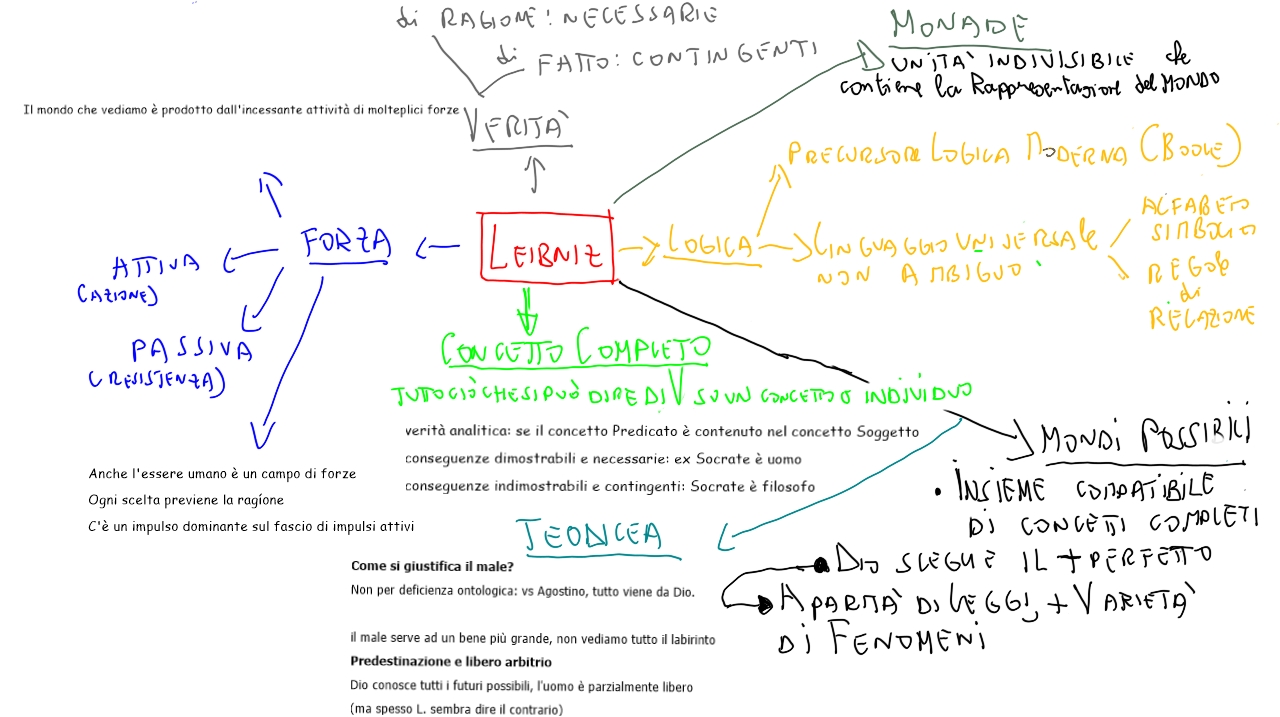 di RAGIONE: NECESSARIE
di FATTO: CONTINGENTI
VERITÀ
MONADE
UNITÀ INDIVISIBILE che
contiene la Rappresentazione del MONDO
Il mondo che vediamo è prodotto dall'incessante attività di molteplici forze
PRECURSORE LOGICA MODERNA (BOOLE)
LEIBNIZ
LOGICA
LINGUAGGIO UNIVERSALE
NON AMBIGUO
ALFABETO
SIMBOLICO
REGOLE
di
RELAZIONE
FORZA
ATTIVA
(AZIONE)
PASSIVA
(RESISTENZA)
Anche l'essere umano è un campo di forze
Ogni scelta previene la ragíone
C'è un impulso dominante sul fascio di impulsi attivi
CONCETTO COMPLETO
TUTTO CIÒ CHE SI PUÒ DIRE DI V SU UN CONCETTO O INDIVIDUO
verità analitica: se il concetto Predicato è contenuto nel concetto Soggetto
conseguenze dimostrabili e necessarie: ex Socrate è uomo
conseguenze indimostrabili e contingenti: Socrate è filosofo
MONDI POSSIBILI
• INSIEME COMPATIBILE
DI CONCETTI COMPLETI
DIO SCEGLIE IL + PERFETTO
A PARITÀ DI LEGGI, + VARIETÀ
DI FENOMENI
TEODICEA
Come si giustifica il male?
Non per deficienza ontologica: vs Agostino, tutto viene da Dio.
il male serve ad un bene più grande, non vediamo tutto il labirinto
Predestinazione e libero arbitrio
Dio conosce tutti i futuri possibili, l'uomo è parzialmente libero
(ma spesso L. sembra dire il contrario)